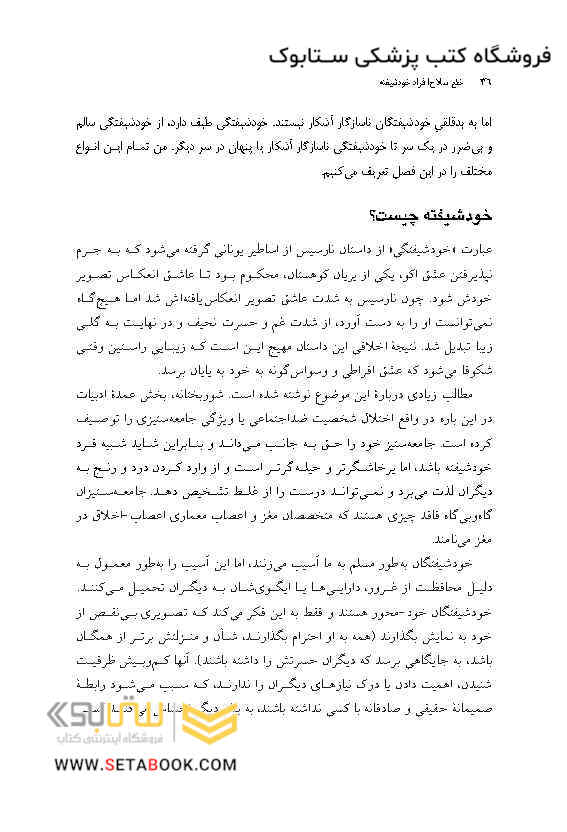 فروشگاه کتب پزشکی ســتابوک
۳۶ خلع سلاح افراد خودشیفته
اما به بدقلقی خودشیفتگان ناسازگار آشکار نیستند. خودشیفتگی طیف دارد، از خودشیفتگی سالم
و بی‌ضرر در یک سر تا خودشیفتگی ناسازگار آشکار یا پنهان در سر دیگر. من تمام این انواع
مختلف را در این فصل تعریف می‌کنیم.
خودشیفته چیست؟
عبارت «خودشیفتگی» از داستان نارسیس از اساطیر یونانی گرفته می‌شود که به جرم
نپذیرفتن عشق اکو، یکی از پریان کوهستان، محکوم بود تا عاشق انعکاس تصویر
خودش شود. چون نارسیس به شدت عاشق تصویر انعکاس‌یافته‌اش شد اما هیچ‌گاه
نمی‌توانست او را به دست آورد، از شدت غم و حسرت نحیف و در نهایت به گلی
زیبا تبدیل شد. نتیجهٔ اخلاقی این داستان مهیج این است که زیبایی راستین وقتی
شکوفا می‌شود که عشق افراطی و وسواس‌گونه به خود به پایان برسد.
مطالب زیادی دربارهٔ این موضوع نوشته شده است. شوربختانه، بخش عمدهٔ ادبیات
در این باره در واقع اختلال شخصیت ضداجتماعی یا ویژگی جامعه‌ستیزی را توصیف
کرده است. جامعه‌ستیز خود را حق به جانب می‌داند و بنابراین شاید شبیه فرد
خودشیفته باشد، اما پرخاشگرتر و حیله‌گرتر است و از وارد کردن درد و رنج به
دیگران لذت می‌برد و نمی‌تواند درست را از غلط تشخیص دهد. جامعه‌ستیزان
گاه‌وبی‌گاه فاقد چیزی هستند که متخصصان مغز و اعصاب معماری اعصاب-اخلاق در
مغز می‌نامند.
خودشیفتگان به‌طور مسلم به ما آسیب می‌زنند، اما این آسیب را به‌طور معمول به
دلیل محافظت از غرور، دارایی‌ها یا ایگوی‌شان به دیگران تحمیل می‌کنند.
خودشیفتگان خود-محور هستند و فقط به این فکر می‌کند که تصویری بی‌نقص از
خود به نمایش بگذارند (همه به او احترام بگذارند، شأن و منزلتش برتر از همگان
باشد، به جایگاهی برسد که دیگران حسرتش را داشته باشند). آنها کم‌وبیش ظرفیت
شنیدن، اهمیت دادن یا درک نیازهای دیگران را ندارند، که سبب می‌شود رابطهٔ
صمیمانهٔ حقیقی و صادقانه با کسی نداشته باشند، به
ستابوک
فروشگاه اینترنتی کتاب
WWW.SETABOOK.COM